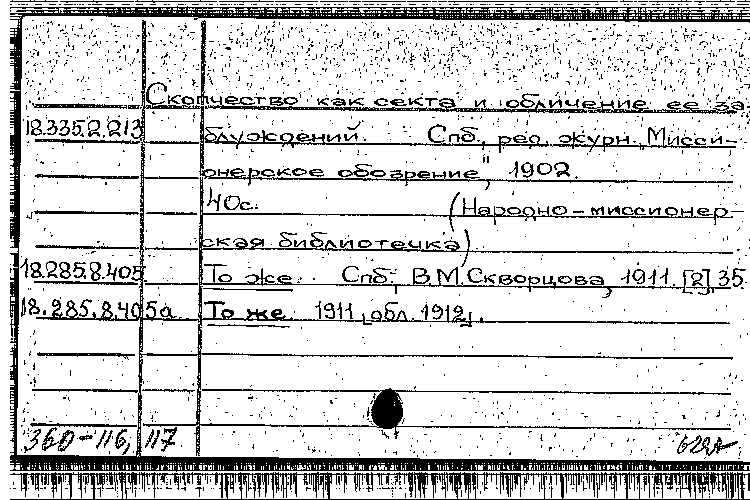 Скопчество как секта и обличение ее за-
18.335.2.213 блуждений. Спб., ред. журн. "Мисси-
онерское обозрение", 1902.
40с. (Народно-миссионер-
ская библиотечка)
18.285.8.405 То же. Спб., В.М.Скворцова, 1911. [2], 35
18.285.8.405а То же. 1911 [обл. 1912].
360-116, 117